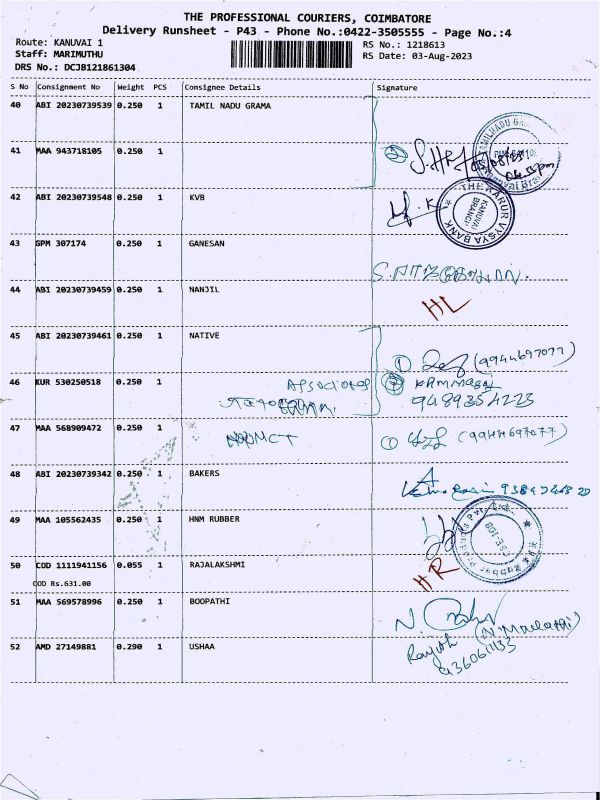 THE PROFESSIONAL COURIERS, COIMBATORE
Delivery Runsheet - P43 - Phone No.:0422-3505555 - Page No.:4
Route: KANUVAI 1
RS No.: 1218613
Staff: MARIMUTHU
RS Date: 03-Aug-2023
DRS No.: DCJB121861304
S No Consignment No Weight PCS Consignee Details Signature
40 ABI 20230739539 0.250 1 TAMIL NADU GRAMA
41 MAA 943718105 0.250 1
42 ABI 20230739548 0.250 1 KVB
THE KARUR VYSYA BANK
KANUVAI BRANCH
43 GPM 307174 0.250 1 GANESAN
44 ABI 20230739459 0.250 1 NANJIL
HL
45 ABI 20230739461 0.250 1 NATIVE
① (9944697077)
46 KUR 530250518 0.250 1
9489354223
47 MAA 568909472 0.250 1
① (9944697077)
48 ABI 20230739342 0.250 1 BAKERS
49 MAA 105562435 0.250 1 HNM RUBBER
50 COD 1111941156 0.055 1 RAJALAKSHMI
HR
COD Rs.631.00
51 MAA 569578996 0.250 1 BOOPATHI
52 AMD 27149881 0.290 1 USHAA